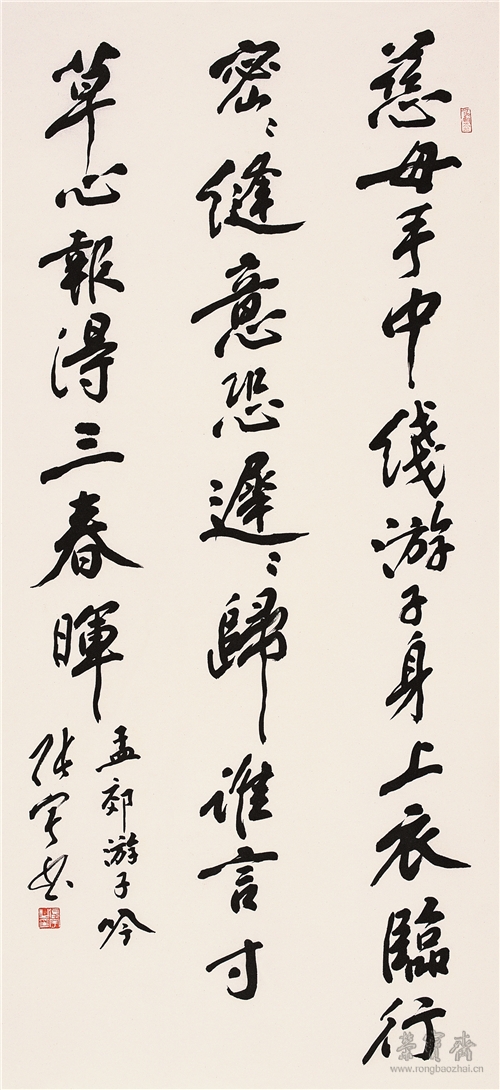 慈母手中线游子身上衣臨行
密〻缝意恐遲〻歸谁言寸
草心報得三春暉
孟郊游子吟
张军书
荣寶齋
www.rongbaozhai.cn